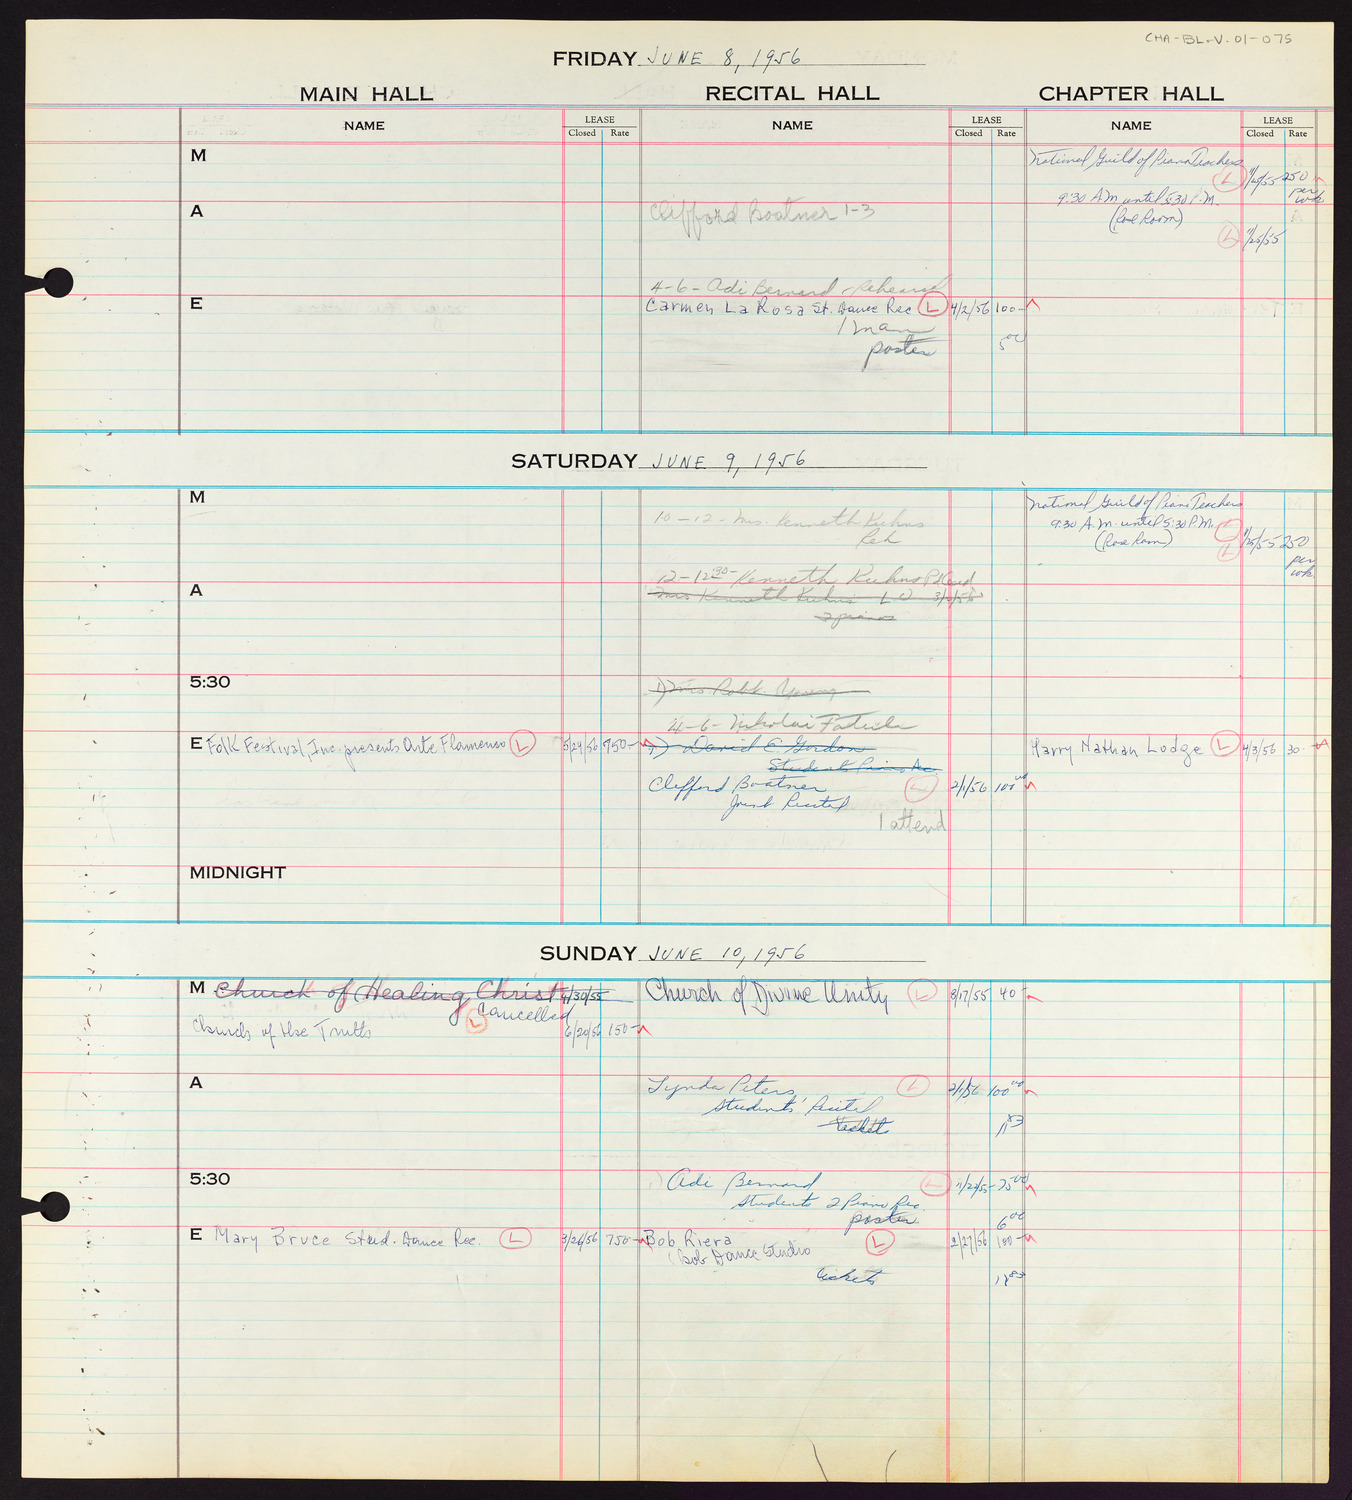 CHA-BL-V.01-075
FRIDAY JUNE 8, 1956
MAIN HALL RECITAL HALL CHAPTER HALL
NAME LEASE Closed Rate NAME LEASE Closed Rate NAME LEASE Closed Rate
M National Guild of Piano Teachers
L 1/25/55 250 per wk
9:30 A.M. until 5:30 P.M.
A Clifford Boatner 1-3
L 1/25/55
4-6- Adi Bernard - Rehearsal
E Carmen La Rosa St. Dance Rec L 4/2/56 100-
1 man
poster 5 00
SATURDAY JUNE 9, 1956
M National Guild of Piano Teachers
10-12- Mrs. Kenneth Kuhns
Reh
9:30 A.M. until 5:30 P.M.
(Rose Room)
L 1/25/55 250 per wk
12-12 30- Kenneth Kuhns
A Mrs Kenneth Kuhns L
2 pianos
5:30
4-6- Nikolai Fatula
E Folk Festival, Inc. presents Arte Flamenco L 5/24/56 750- David E. Gordon Harry Nathan Lodge L 4/3/56 30-
Students Piano Rec
Clifford Boatner L 2/1/56 100 00
Joint Recital
1 attend
MIDNIGHT
SUNDAY JUNE 10, 1956
M Church of Healing Christ 4/30/55 Church of Divine Unity L 8/17/55 40-
Cancelled
Church of the Truth L 6/20/56 150-
A Lynda Peters L 2/1/56 100 00
Students' Recital
ticket 11 83
5:30 Adi Bernard L 11/22/55 75 00
Students 2 Piano Rec.
poster 6 00
E Mary Bruce Stud. Dance Rec. L 3/26/56 750- Bob Riera L 2/27/56 100-
(Bob Dance Studio
tickets 12 83